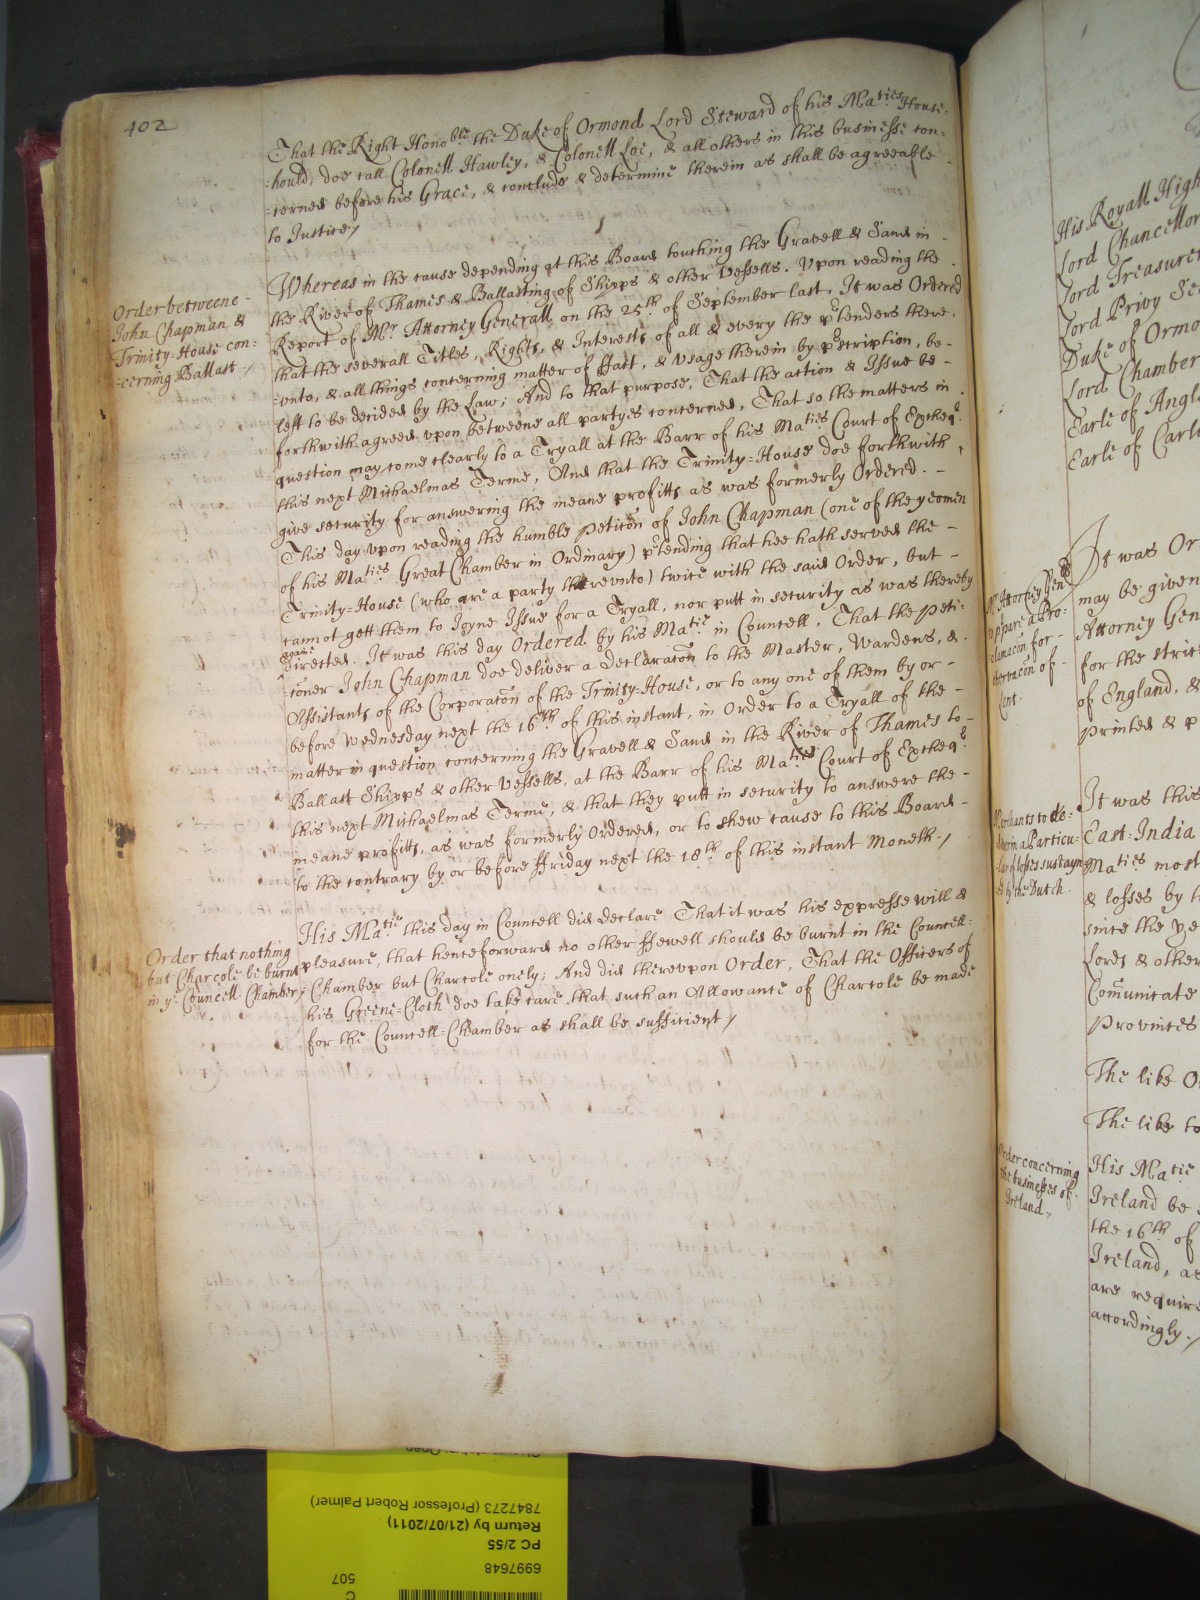 402
That the Right Hono:ble the Duke of Ormond Lord Steward of his Ma:ties House:
:hould, doe call Colonell Hawley, & Colonell Loe, & all others in this businesse con:
:cerned before his Grace, & conclude & determine therein as shall be agreeable
to Justice /
Order betweene
John Chapman &
Trinity-House con:
:cerning Ballast /
Whereas in the cause depending at this Board touching the Gravell & Sand in
the River of Thames & Ballasting of Shipps & other Vessells. Vpon reading the
Report of Mr Attorney Generall on the 25th of September last, It was Ordered
that the severall Titles, Rights, & Interests of all & every the ptenders there,
:vnto, & all things concerning matter of ffact, & Vsage therein by pscription, be
left to be decided by the Law; And to that purpose, That the action & Issue be
forthwith agreed vpon betweene all partyes concerned, That so the matters in
question may come clearly to a Tryall at the Barr of his Ma:ties Court of Excheqr
this next Michaelmas Terme, And that the Trinity=House doe forthwith
give security for answering the meane profitts as was formerly Ordered.
This day vpon reading the humble Peticon of John Chapman (one of the yeomen
of his Ma:ties Great Chamber in Ordinary) ptending that hee hath served the
Trinity-House (who are a party therevnto) twice with the said Order, but
cannot gett them to Joyne Issue for a Tryall, nor putt in security as was thereby
againe
directed. It was this day Ordered by his Ma:tie in Councell, That the Peti:
:coner John Chapman doe deliver a declaracon to the Master, Wardens, &
Assistants of the Corporacon of the Trinity=House, or to any one of them by or
before Wednesday next the 16th of this instant, in Order to a Tryall of the
matter in question concerning the Gravell & Sand in the River of Thames to
Ballast Shipps & other Vessells, at the Barr of his Ma:ties Court of Excheqr
this next Michaelmas Terme, & that they putt in security to answere the
meane profitts, as was formerly Ordered, or to shew cause to this Board
to the contrary by or before ffriday next the 18th of this instant Moneth /
Order that nothing
but Charcole be burnt
in ye Councell Chamber /
His Ma:tie this day in Councell did declare That it was his expresse will &
pleasure, that henceforward no other ffewell should be burnt in the Councell:
Chamber but Charcole onely; And did therevpon Order, That the Officers of
his Greene=Cloth doe take care that such an Allowance of Charcole be made
for the Councell=Chamber as shall be sufficient /
His Royall High
Lord Chancellor
Lord Treasurer
Lord Privy Se
Duke of Ormo
Lord Chamber
Earle of Angl
Earle of Carl
Mr Attorney Gen
to ppare a Pro:
clamacon for
of
Lent.
It was Or
may be given
Attorney Gen
for the strict
of England, &
printed & p
Merchants to de:
a Particu:
of losses sustayn
by the Dutch.
It was this
East=India
Ma:ties most
& losses by t
since the ye
Lords & other
Comunicate
Provinces
The like O
The like to
Order concerning
the businesses of
Ireland,
His Ma:tie
Ireland be
the 16th of
Ireland, as
are require
accordingly. /
7847273 (Professor Robert Palmer)
Return by (21/07/2011)
PC 2/55
6997648
C
507